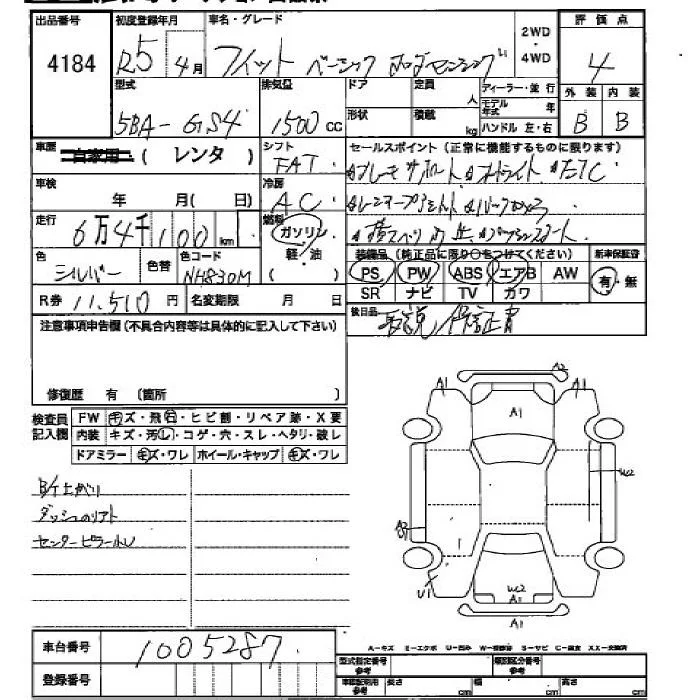 出品番号 初度登録年月 車名・グレード 2WD ・ 4WD 評価点
4184 R5年4月 フィット ベーシック ホンダセンシング 4
型式 排気量 ドア 定員 人 ディーラー・並行 外装 内装
5BA-GS4 1500 CC 形状 積載 kg モデル年式 年 B B
ハンドル 左・右
車歴 自家用 ( レンタ ) シフト FAT セールスポイント (正常に機能するものに限ります)
車検 年 月(日) 冷房 AC
走行 6万4千100 km 燃料 ガソリン 軽・油 ( )
色 シルバー 色替 色コード NH830M
装備品 (純正品に限り○をつけてください) 新車保証書
PS PW ABS エアB AW 有・無
SR ナビ TV カワ
R券 11,510 円 名変期限 月 日
後日品
注意事項申告欄 (不具合内容等は具体的に記入して下さい)
修復歴 有 〔箇所 〕
検査員記入欄 FW キズ・飛石・ヒビ割・リペア跡・X要
内装 キズ・汚し・コゲ・穴・スレ・ヘタリ・破レ
ドアミラー キズ・ワレ ホイール・キャップ キズ・ワレ
A2
A1 A1 A1
W2
U1 W2 A1
A1
B/仕上がり
ダッシュのリアト
センターピラールレ
車台番号 1005287
登録番号
A－キズ E－エクボ U－凹み W－補修跡 S－サビ C－腐食 XX－交換済
型式指定番号 参考 類別区分番号 参考
車検証明用 参考 長さ cm 幅 cm 高さ cm